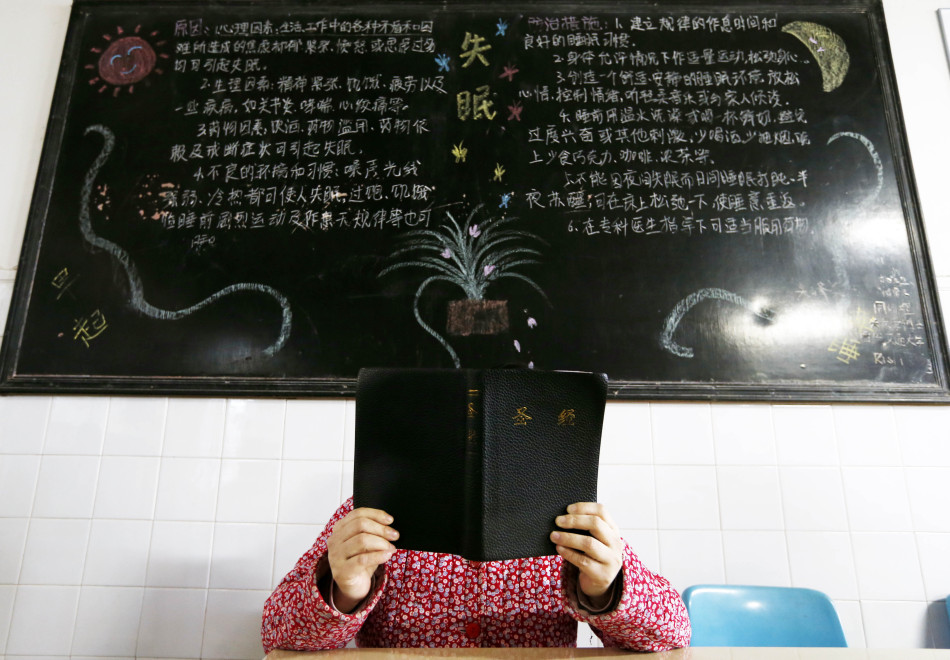 失
眠
原因:1.心理因素:生活、工作中的各种矛盾和困
难所造成的焦虑抑郁、紧张、愤怒或思虑过多
均可引起失眠。
2.生理因素:精神紧张、饥饿、疲劳以及
一些疾病,如关节炎、哮喘、心绞痛等。
3.药物因素,饮酒、药物滥用、药物依
赖及戒断症状可引起失眠。
4.不良的环境和习惯:噪声、光线
冷热都可使人失眠,过饱、饥饿
睡前剧烈运动及作息无规律等也可
防治措施:1.建立规律的作息时间和
良好的睡眠习惯.
2.身体允许情况下作适量运动,松劲身心.
3.创造一个舒适安静的睡眠环境,放松
心情,控制情绪,听轻柔音乐或与家人倾谈。
4.睡前用温水洗澡或喝一杯鲜奶,避免
过度兴奋或其他刺激,少喝酒,少抽烟,晚
上少食巧克力、咖啡、浓茶等.
5.不能因夜间失眠而日间睡眠打盹.半
夜苏醒,可在床上松弛一下,使睡意重返。
6.在专科医生指导下可适当服用药物.
起
圣 经